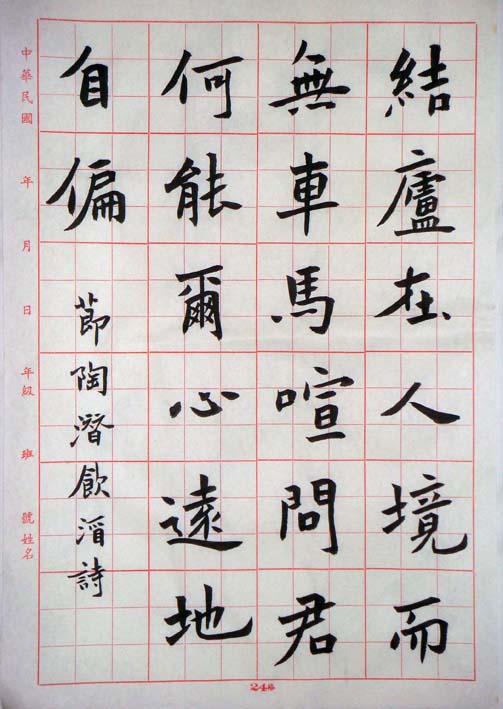 結廬在人境而
無車馬喧問君
何能爾心遠地
自偏
節陶潛飲酒詩
中華民國 年 月 日 年級 班 號姓名